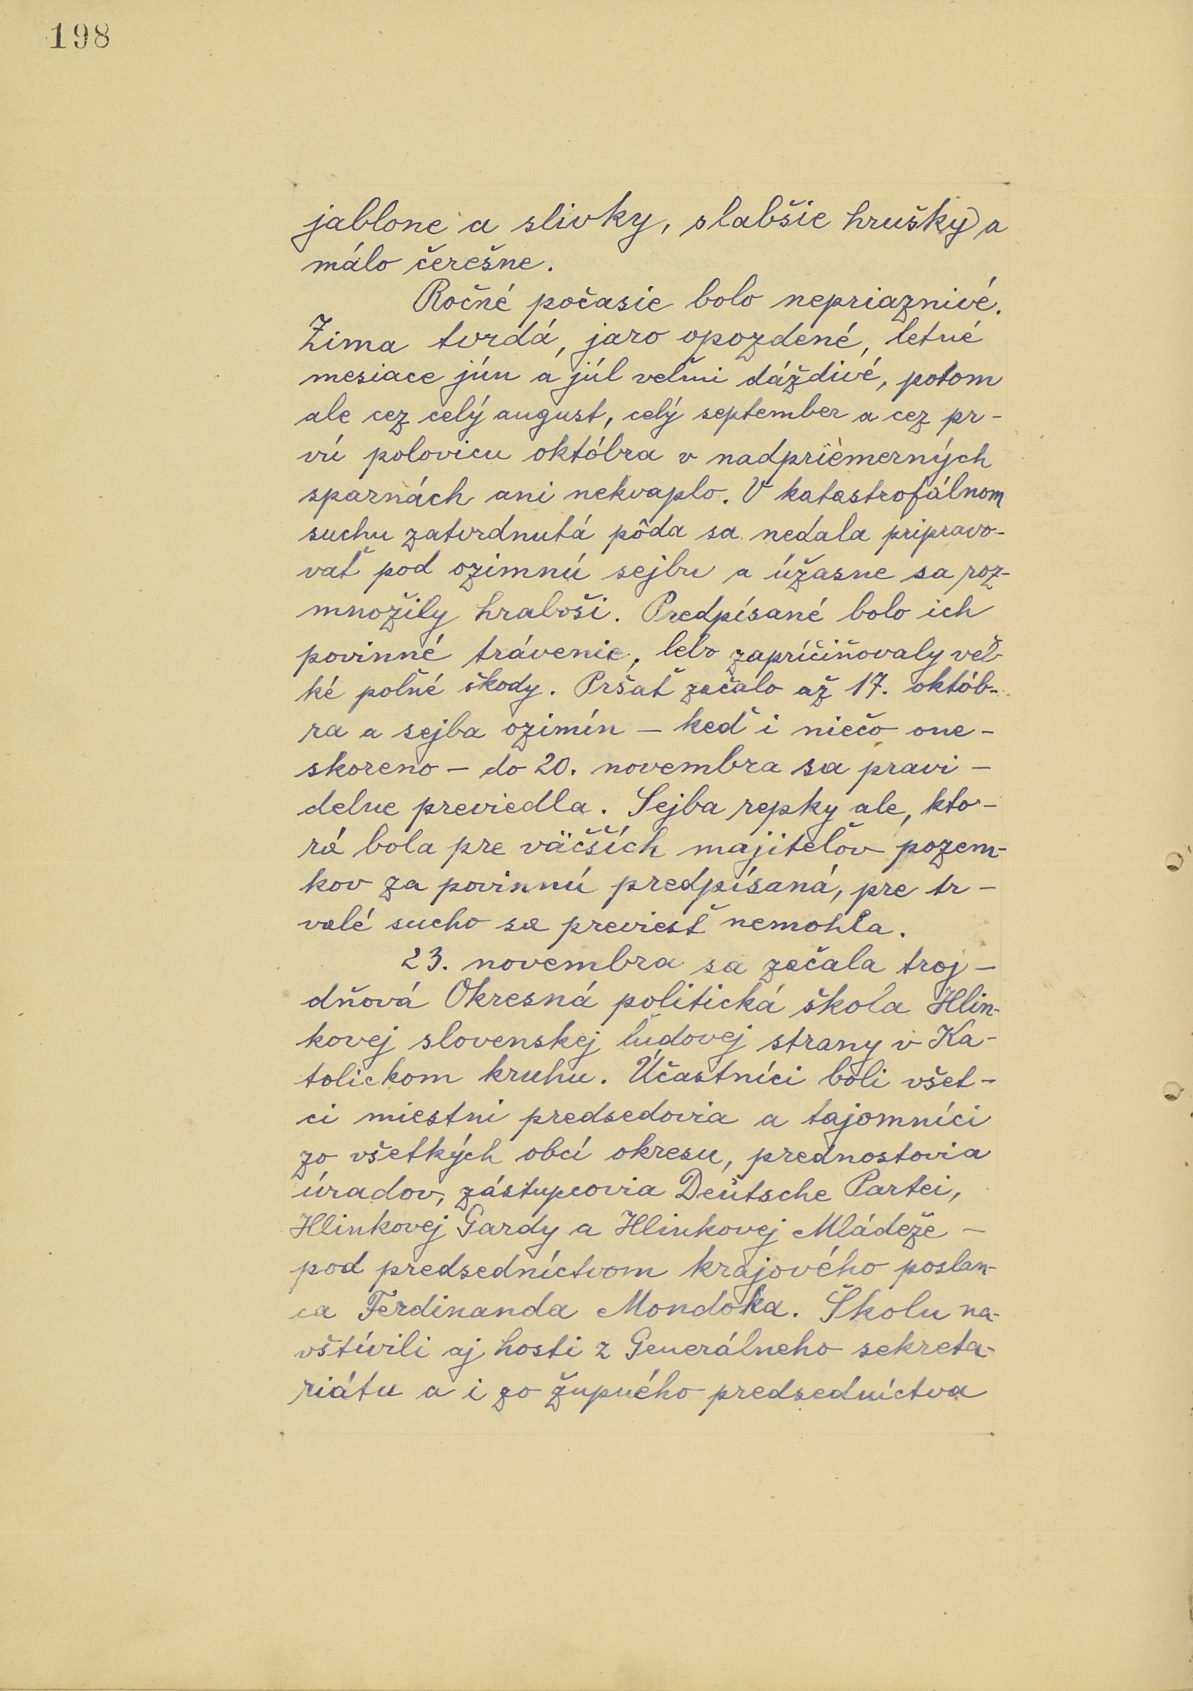 198
jablone a slivky, slabšie hrušky a
málo čerešne.
Ročné počasie bolo nepriaznivé.
Zima tvrdá, jaro opozdené, letné
mesiace jún a júl veľmi dáždivé, potom
ale cez celý august, celý september a cez pr-
vú polovicu októbra v nadpriemerných
sparnách ani nekvaplo. V katastrofálnom
suchu zatvrdnutá pôda sa nedala pripravo-
vať pod ozimnú sejbu a úžasne sa roz-
množily hraboši. Predpísané bolo ich
povinné trávenie, lebo zapríčiňovaly veľ-
ké poľné škody. Pršať začalo až 17. októb-
ra a sejba ozimín – keď i niečo one-
skoreno – do 20. novembra sa pravi-
delne previedla. Sejba repky ale, kto-
rá bola pre väčších majiteľov pozem-
kov za povinnú predpísaná, pre tr-
valé sucho sa previesť nemohla.
23. novembra sa začala troj-
dňová Okresná politická škola Hlin-
kovej slovenskej ľudovej strany v Ka-
tolickom kruhu. Účastníci boli všet-
ci miestni predsedovia a tajomníci
zo všetkých obcí okresu, prednostovia
úradov, zástupcovia Deutsche Partei,
Hlinkovej Gardy a Hlinkovej Mládeže –
pod predsedníctvom krajového poslan-
ca Ferdinanda Mondoka. Školu na-
vštívili aj hosti z Generálneho sekreta-
riátu a i zo župného predsedníctva